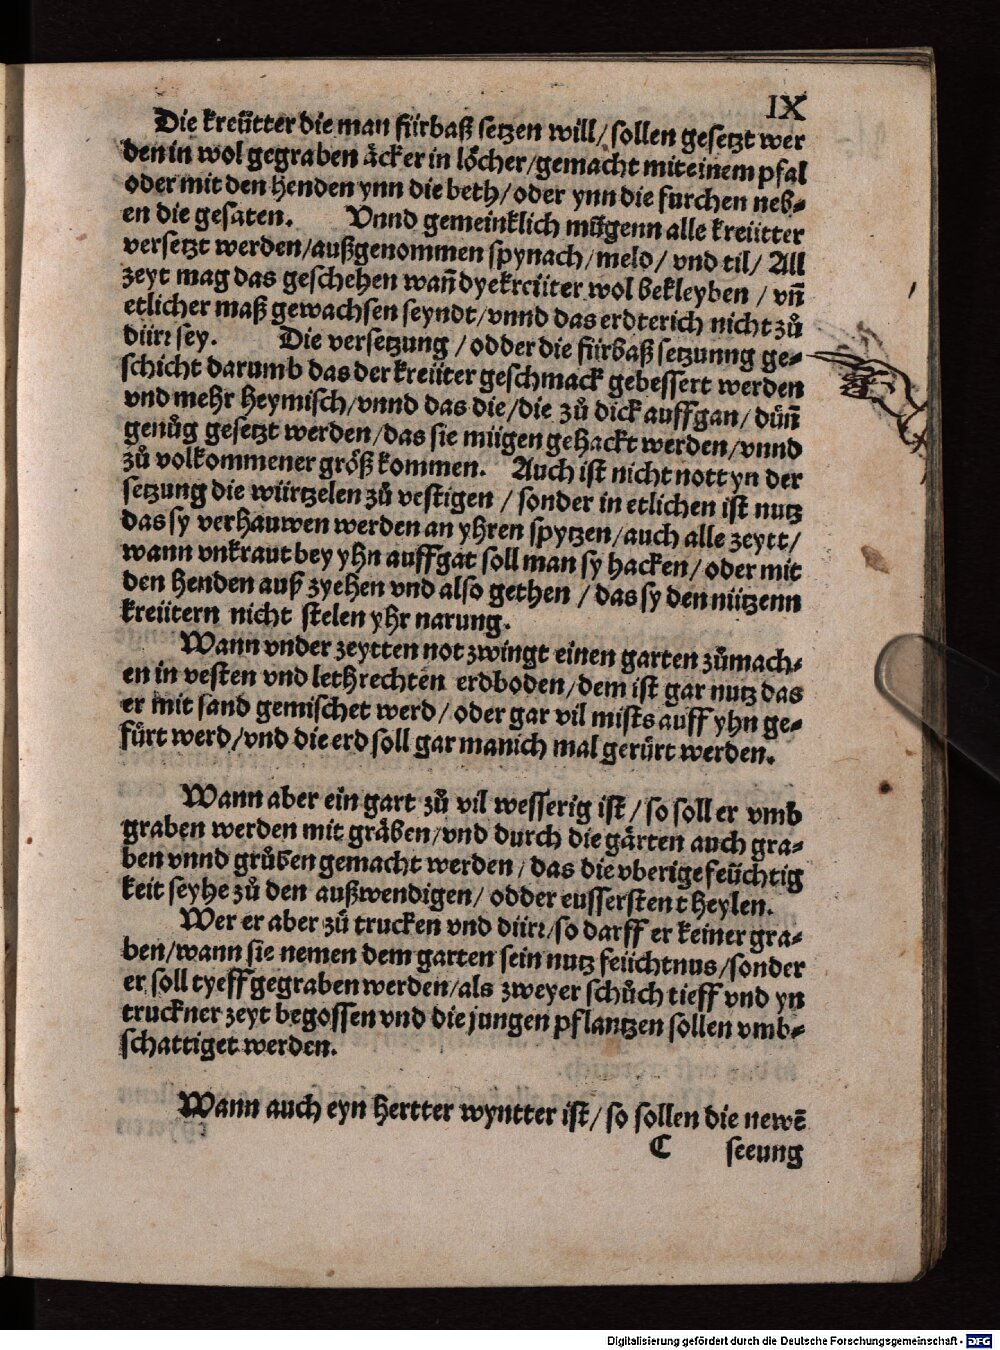 IX
Die kreütter die man fürbaß setzen will/ sollen gesetzt wer
den in wol gegraben äcker in löcher/gemacht mit einem pfal
oder mit den henden ynn die beth/ oder ynn die furchen neb⸗
en die gesaten. Vnnd gemeinklich mügenn alle kreütter
versetzt werden/außgenommen spynach/ meld/ vnd til/ All
zeyt mag das geschehen wañ dye kreüter wol bekleyben / vñ
etlicher maß gewachsen seyndt/vnnd das erdterich nicht zů
dürr sey. Die versetzung / odder die fürbaß setzunng ge⸗
schicht darumb das der kreüter geschmack gebessert werden
vnd mehr heymisch/vnnd das die/die zů dick auffgan/ düñ
genůg gesetzt werden/das sie mügen gehackt werden/vnnd
zů volkommener größ kommen. Auch ist nicht nott yn der
setzung die würtzelen zů vestigen / sonder in etlichen ist nutz
das sy verhauwen werden an yhren spytzen/auch alle zeytt/
wann vnkraut bey yhn auffgat soll man sy hacken/ oder mit
den henden auß zyehen vnd also gethen / das sy den nützenn
kreütern nicht stelen yhr narung.
Wann vnder zeytten not zwingt einen garten zůmach⸗
en in vesten vnd lethrechten erdboden/dem ist gar nutz das
er mit sand gemischet werd/ oder gar vil mists auff yhn ge⸗
fürt werd/vnd die erd soll gar manich mal gerürt werden.
Wann aber ein gart zů vil wesserig ist/ so soll er vmb
graben werden mit gräben/vnd durch die gärten auch gra⸗
ben vnnd grůben gemacht werden/ das die vberige feüchtig
keit seyhe zů den außwendigen/ odder eussersten theylen.
Wer er aber zů trucken vnd dürr/so darff er keiner gra⸗
ben/wann sie nemen dem garten sein nutz feüchtnus/sonder
er soll tyeff gegraben werden/als zweyer schůch tieff vnd yn
truckner zeyt begossen vnd die jungen pflantzen sollen vmb⸗
schattiget werden.
Wann auch eyn hertter wyntter ist/ so sollen die newē
C seeung
Digitalisierung gefördert durch die Deutsche Forschungsgemeinschaft - DFG